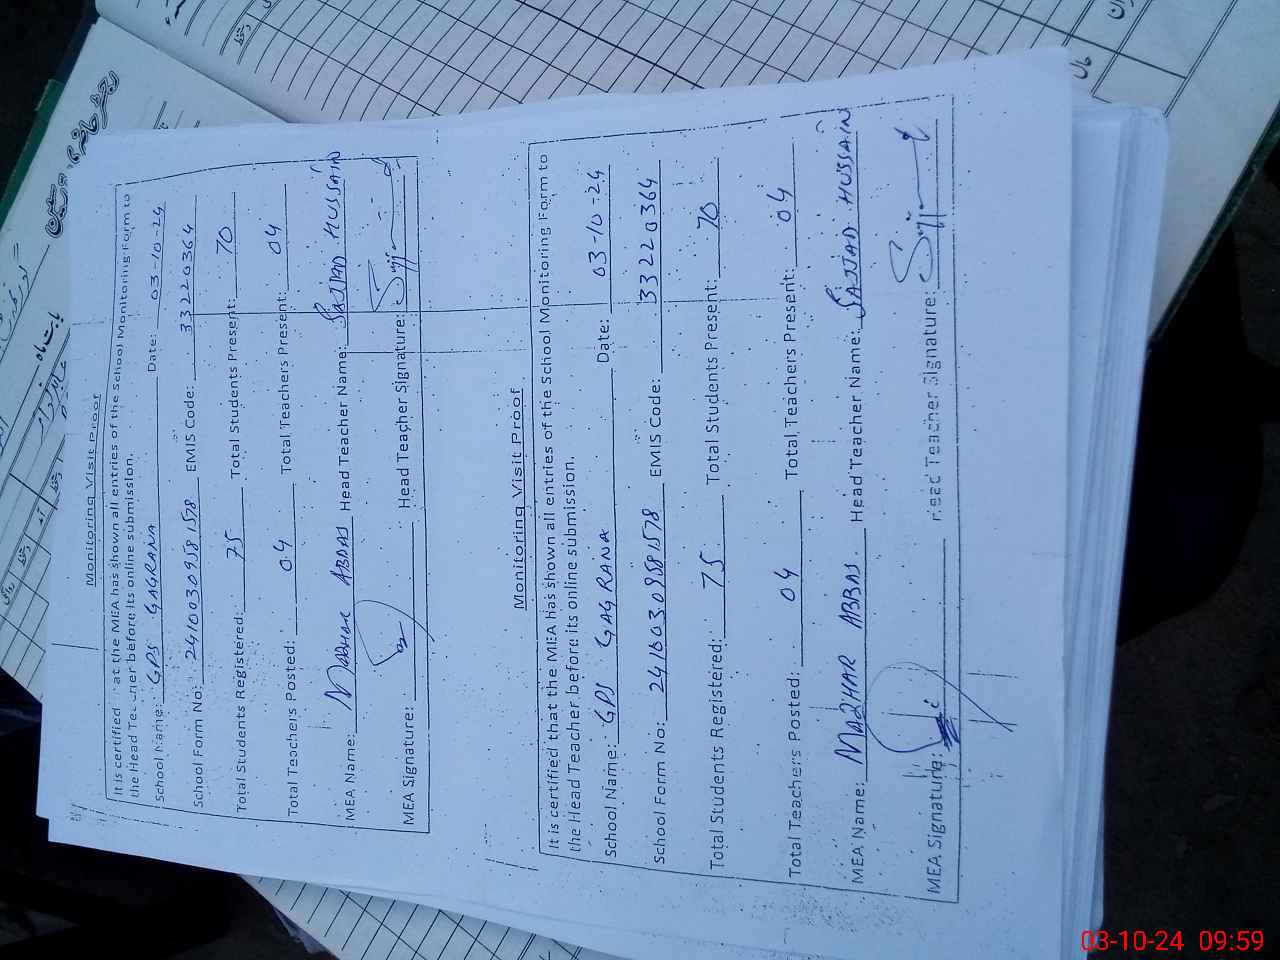 Monitoring Visit Proof
It is certified at the MEA has shown all entries of the School Monitoring Form to
the Head before its online submission.
School Name: GPS GAGRANA Date: 03-10-24
School Form No: 24100309581578 EMIS Code: 33220364
Total Students Registered: 75 Total Students Present: 70
Total Teachers Posted: 04 Total Teachers Present: 04
MEA Name: MAZHAR ABBAS Head Teacher Name: SAJJAD HUSSAIN
MEA Signature: Head Teacher Signature:
Monitoring Visit Proof
It is certified that the MEA has shown all entries of the School Monitoring Form to
the Head Teacher before its online submission.
School Name: GPS GAGRANA Date: 03-10-24
School Form No: 24100309581578 EMIS Code: 33220364
Total Students Registered: 75 Total Students Present: 70
Total Teachers Posted: 04 Total Teachers Present: 04
MEA Name: MAZHAR ABBAS Head Teacher Name: SAJJAD HUSSAIN
MEA Signature: Head Teacher Signature:
03-10-24 09:59